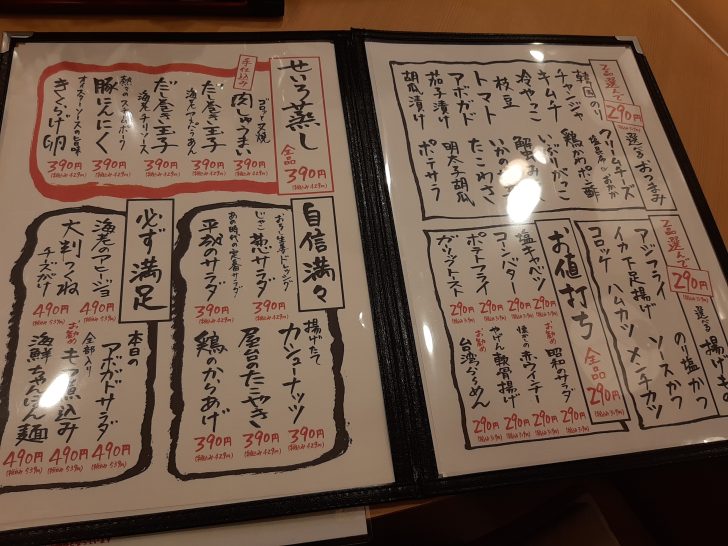 2品選んで290円
選べるおつまみ
クリームチーズ
韓国のり
チャンジャ
鶏かわポン酢
キムチ
いぶりがっこ
冷やっこ
枝豆
トマト
たこわさ
アボカド
明太子胡瓜
茄子漬け
ポテサラ
胡瓜漬け
2品選んで290円
選べる揚げもの
アジフライ
のり塩かつ
イカ下足揚げ
ソースかつ
コロッケ
ハムカツ
メンチカツ
お値打ち
全品290円
塩キャベツ
290円
コーンバター
290円
ポテトフライ
290円
ガーリックトースト
290円
お勧め
昭和のサラダ
290円
赤ウインナー
290円
やげん軟骨揚げ
290円
お勧め
台湾らーめん
290円
せいろ蒸し
全品390円
手仕込み
肉しゅうまい
390円
だし巻き玉子
390円
だし巻き玉子
海老チリソース
390円
豚にんにく
390円
オイスターソースの旨味
きくらげ卵
390円
自信満々
じゃこ葱サラダ
390円
あの時代の定番サラダ
平成のサラダ
390円
揚げたて
カシューナッツ
390円
屋台のたこやき
390円
鶏のからあげ
390円
必ず満足
海老のアヒージョ
490円
大判つくね
チーズがけ
490円
本日の
アボカドサラダ
490円
お勧め
全部入り
モツ煮込み
490円
海鮮ちゃんぽん麺
490円